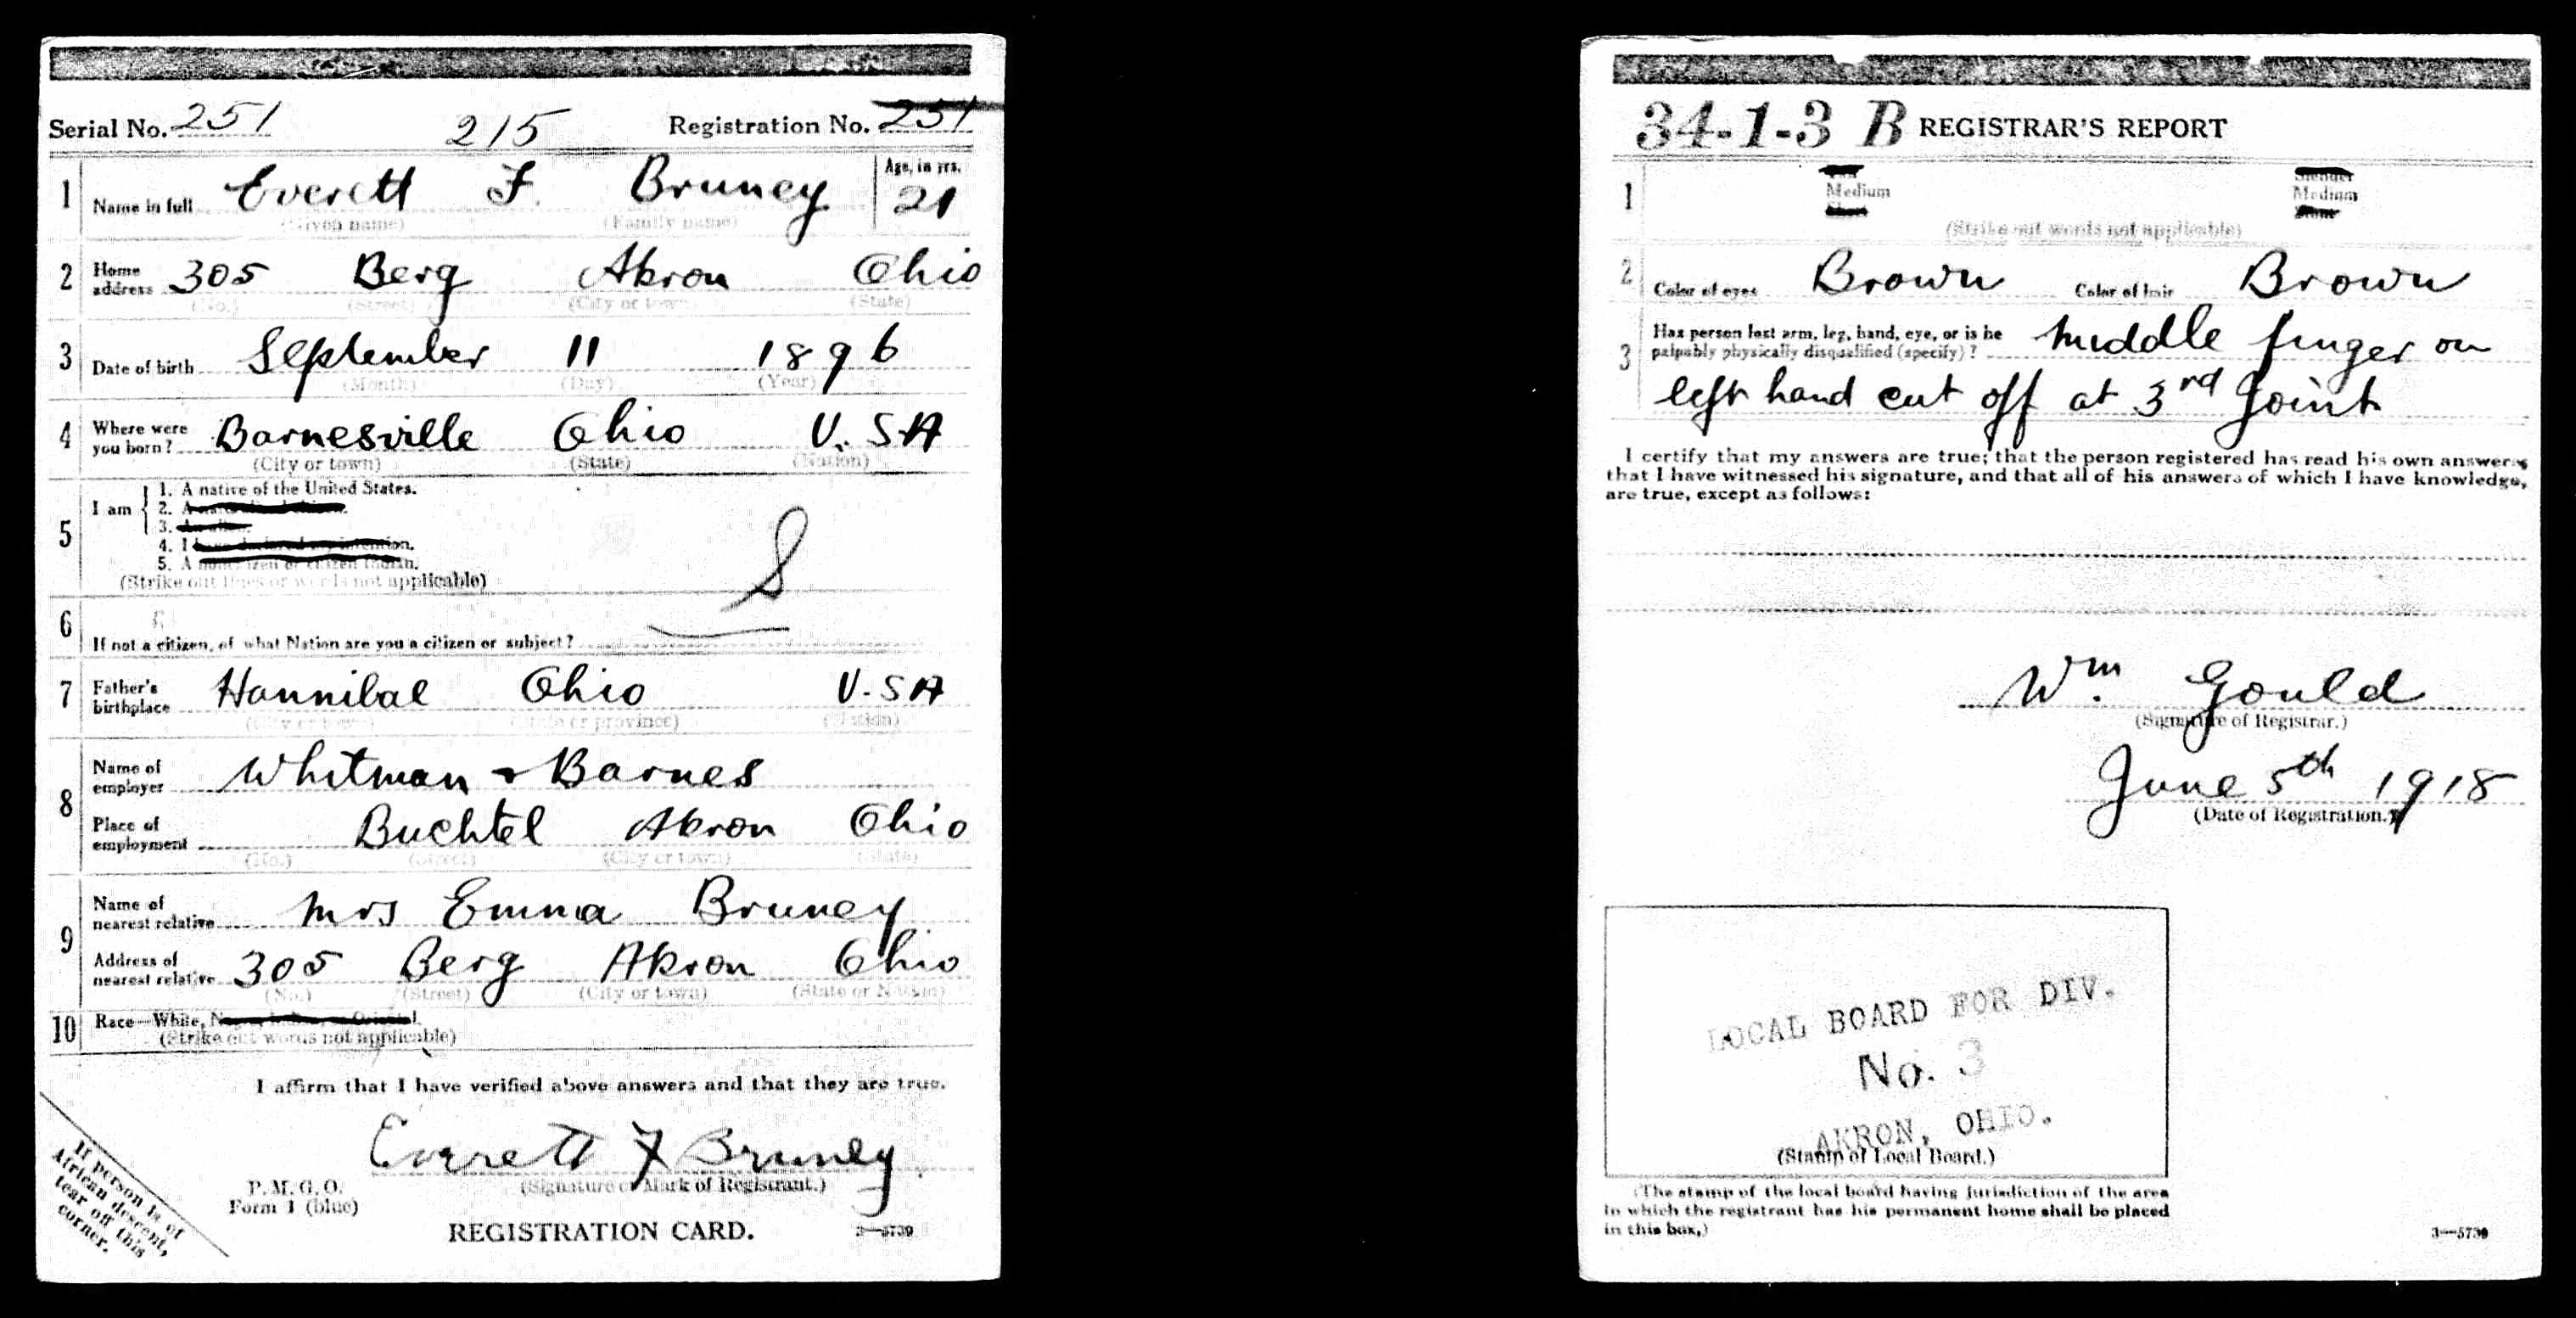 Serial No. 251 215 Registration No. 251
1 Name in full Everett F. Bruney Age, in yrs. 21
(Given name) (Family name)
2 Home address 305 Berg Akron Ohio
(No.) (Street) (City or town) (State)
3 Date of birth September 11 1896
(Month) (Day) (Year)
4 Where were you born? Barnesville Ohio U.S.A
(City or town) (State) (Nation)
5 I am
1. A native of the United States.
2. A
3. An alien.
4. I have declared my intention.
5. A noncitizen or citizen Indian.
(Strike out lines or words not applicable)
S
6 If not a citizen, of what Nation are you a citizen or subject?
7 Father's birthplace Hannibal Ohio U.S.A
(City or town) (State or province) (Nation)
8 Name of employer Whitman & Barnes
Place of employment Buchtel Akron Ohio
(No.) (Street) (City or town) (State)
9 Name of nearest relative Mrs Emma Bruney
Address of nearest relative 305 Berg Akron Ohio
(No.) (Street) (City or town) (State or Nation)
10 Race—White, Negro, Indian, or Oriental.
(Strike out words not applicable)
I affirm that I have verified above answers and that they are true.
Everett F Bruney
(Signature or Mark of Registrant.)
P. M. G. O.
Form 1 (blue)
REGISTRATION CARD. 3—5739
If person is of
African descent,
tear off this
corner.
34-1-3 B REGISTRAR'S REPORT
1 Tall Slender
Medium Medium
Short Stout
(Strike out words not applicable)
2 Color of eyes Brown Color of hair Brown
3 Has person lost arm, leg, hand, eye, or is he
palpably physically disqualified (specify)? middle finger on
left hand cut off at 3rd Joint
I certify that my answers are true; that the person registered has read his own answers,
that I have witnessed his signature, and that all of his answers of which I have knowledge,
are true, except as follows:
Wm. Gould
(Signature of Registrar.)
June 5th 1918
(Date of Registration.)
LOCAL BOARD FOR DIV.
No. 3
AKRON, OHIO.
(Stamp of Local Board.)
(The stamp of the local board having jurisdiction of the area
in which the registrant has his permanent home shall be placed
in this box.)
3—5739